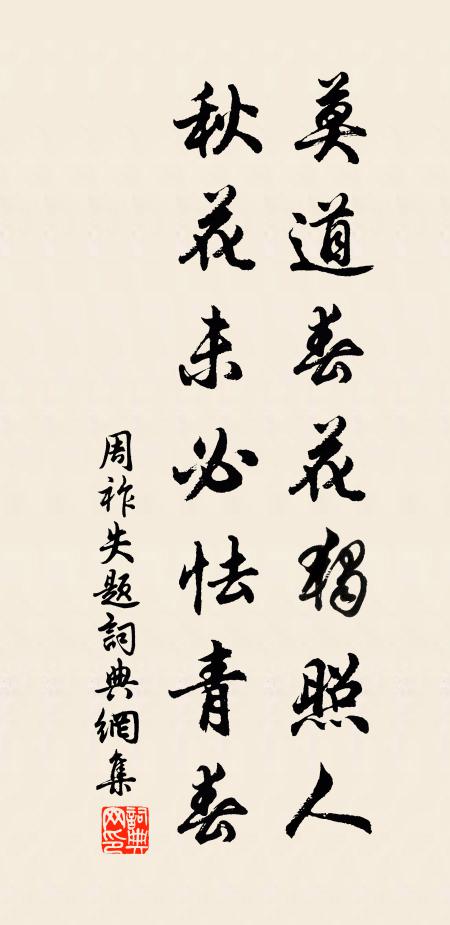 莫道春花獨照人
秋花未必怯青春
周祚失題詞典網集
詞典网印